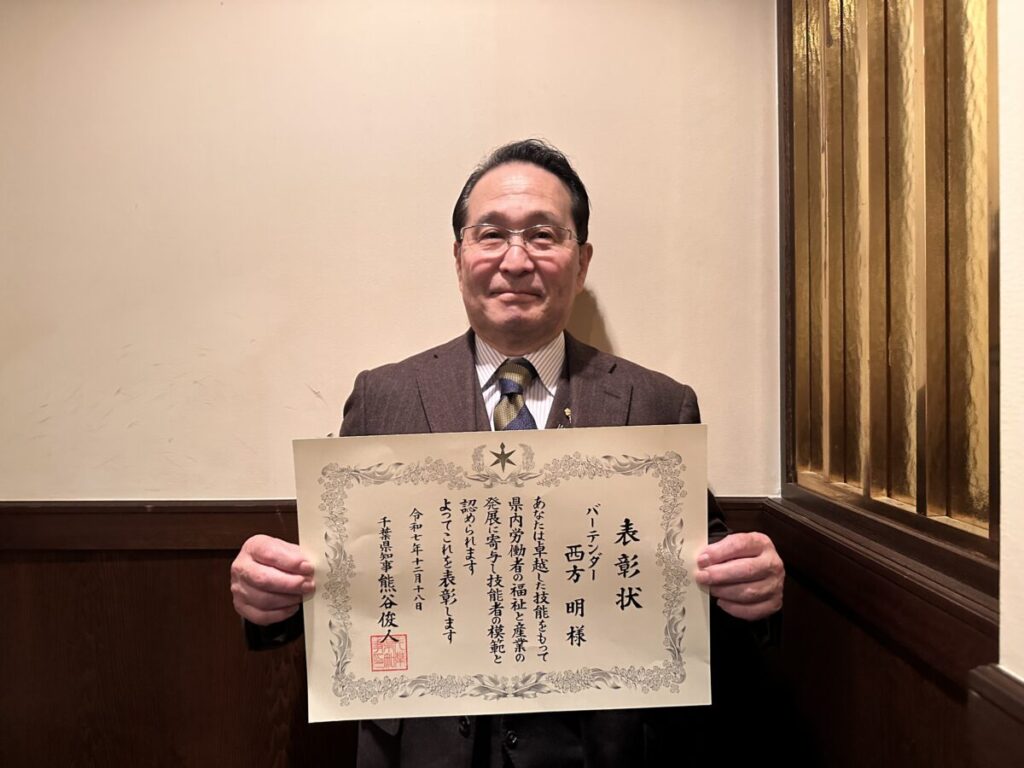 表彰状
バーテンダー
西方 明 様
あなたは卓越した技能をもって
県内労働者の福祉と産業の
発展に寄与し技能者の模範と
認められます
よってこれを表彰します
令和七年十二月十八日
千葉県知事 熊谷俊人